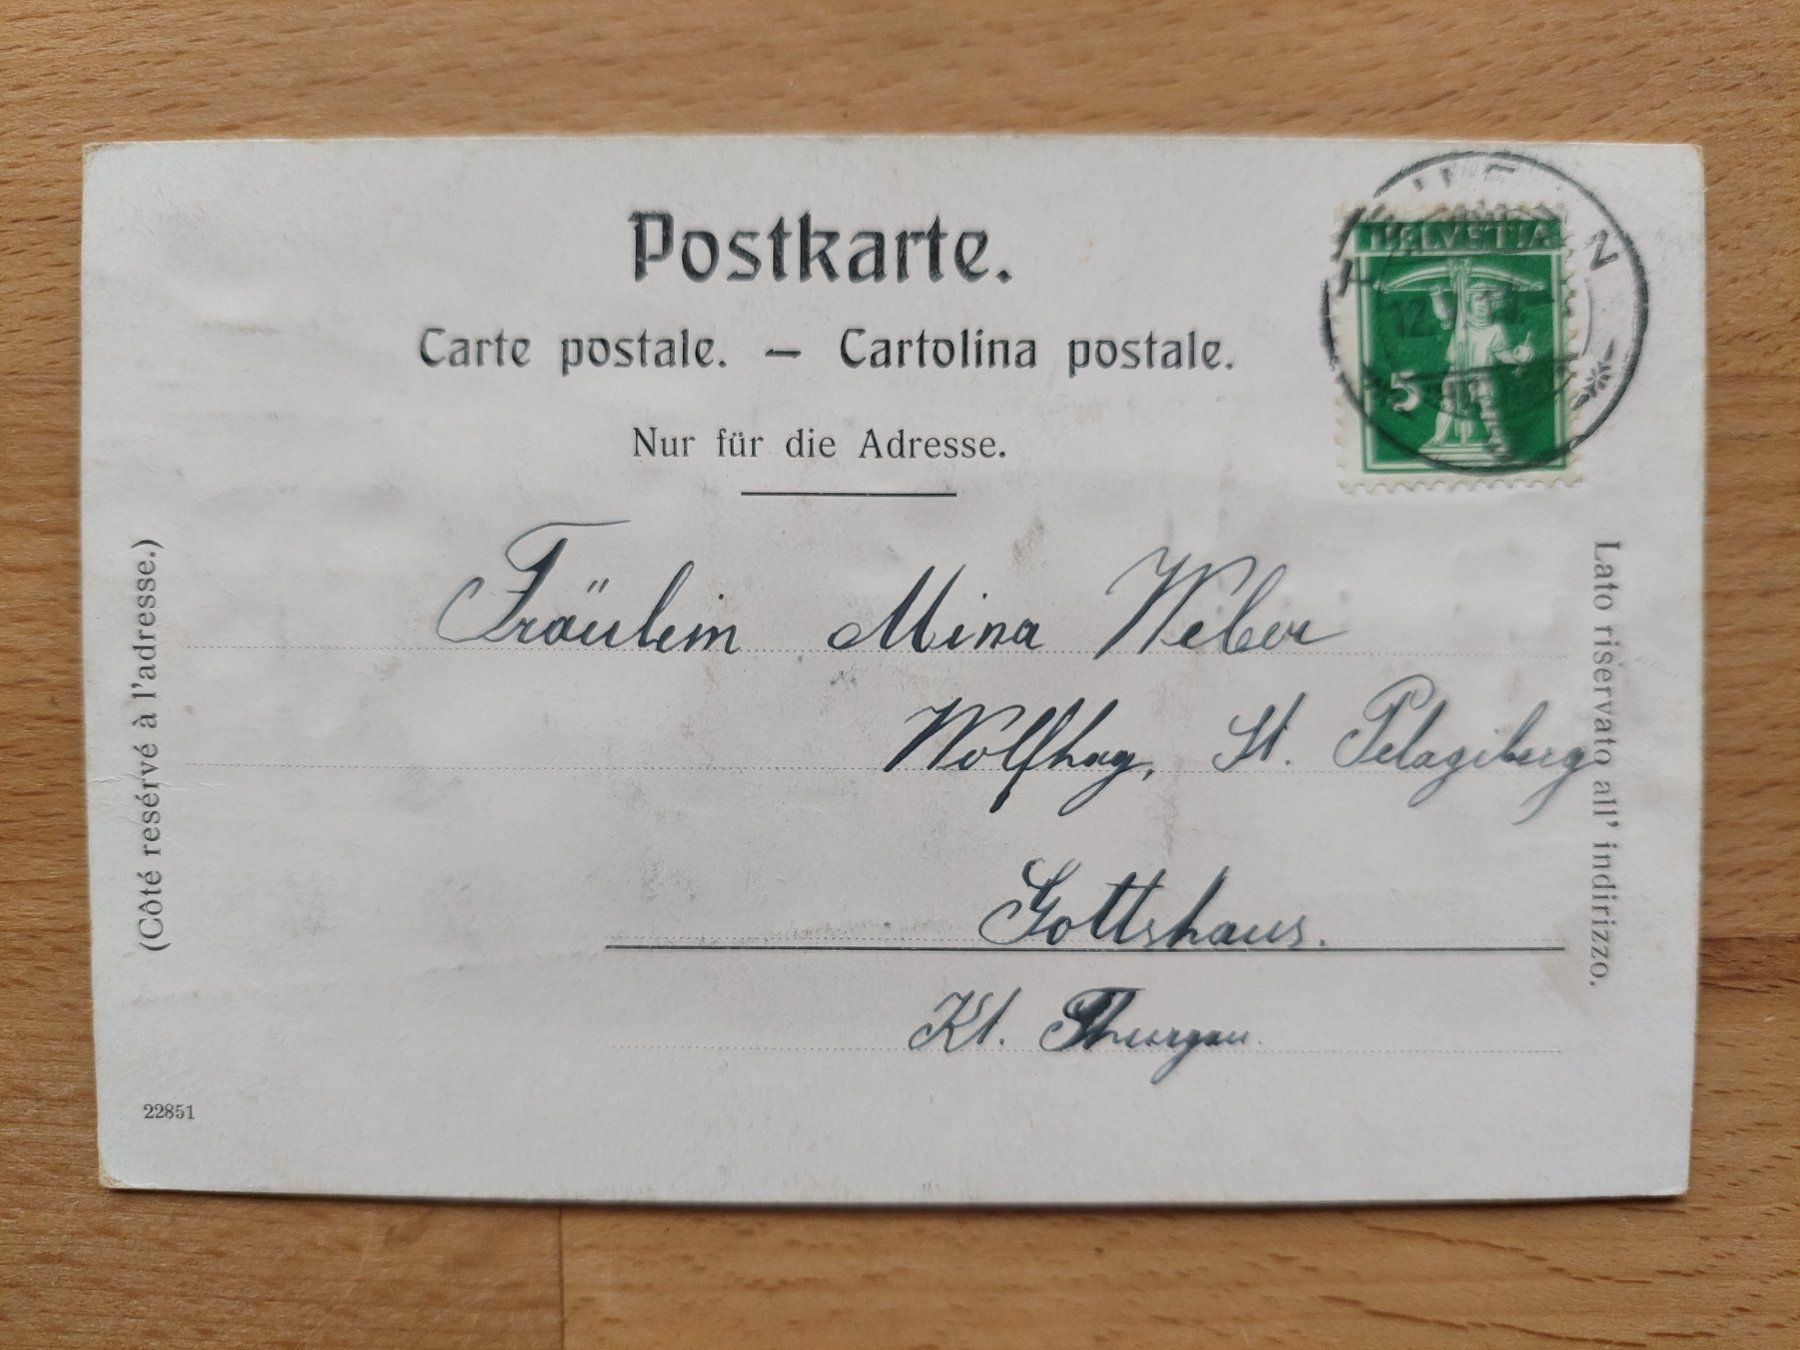 Postkarte.
Carte postale. — Cartolina postale.
Nur für die Adresse.
HELVETIA
5
(Côté resérvé à l'adresse.)
Lato riservato all' indirizzo.
Fräulein Mina Weber
Wolfhag, St. Pelagiberg
Gottshaus.
Kt. Thurgau.
22851